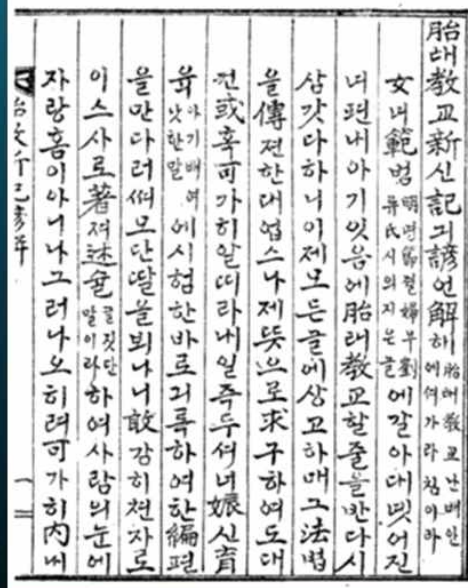 胎태敎교新신記긔諺언解해 胎태敎교난배안에셔가라침이라
女녀範범 明명節졀婦부劉류氏시의지은글 에갈아대 어진
녀편내아기잇음에胎태敎교할줄을반다시
삼갓다하니이제모든글에상고하매그法법
을傳젼한대업스나제뜻으로求구하여도대
컨或혹可가히알띠라내일즉두셔녀娠신育
육 아기배여낫한말 에시험한바로긔록하여한編편
을만다러써모단딸을뵈나니敢감히쳔자로
이스사로著져述슐 글짓단말이라 하여사람의눈에
자랑홈이아니나그러나오히려可가히內내